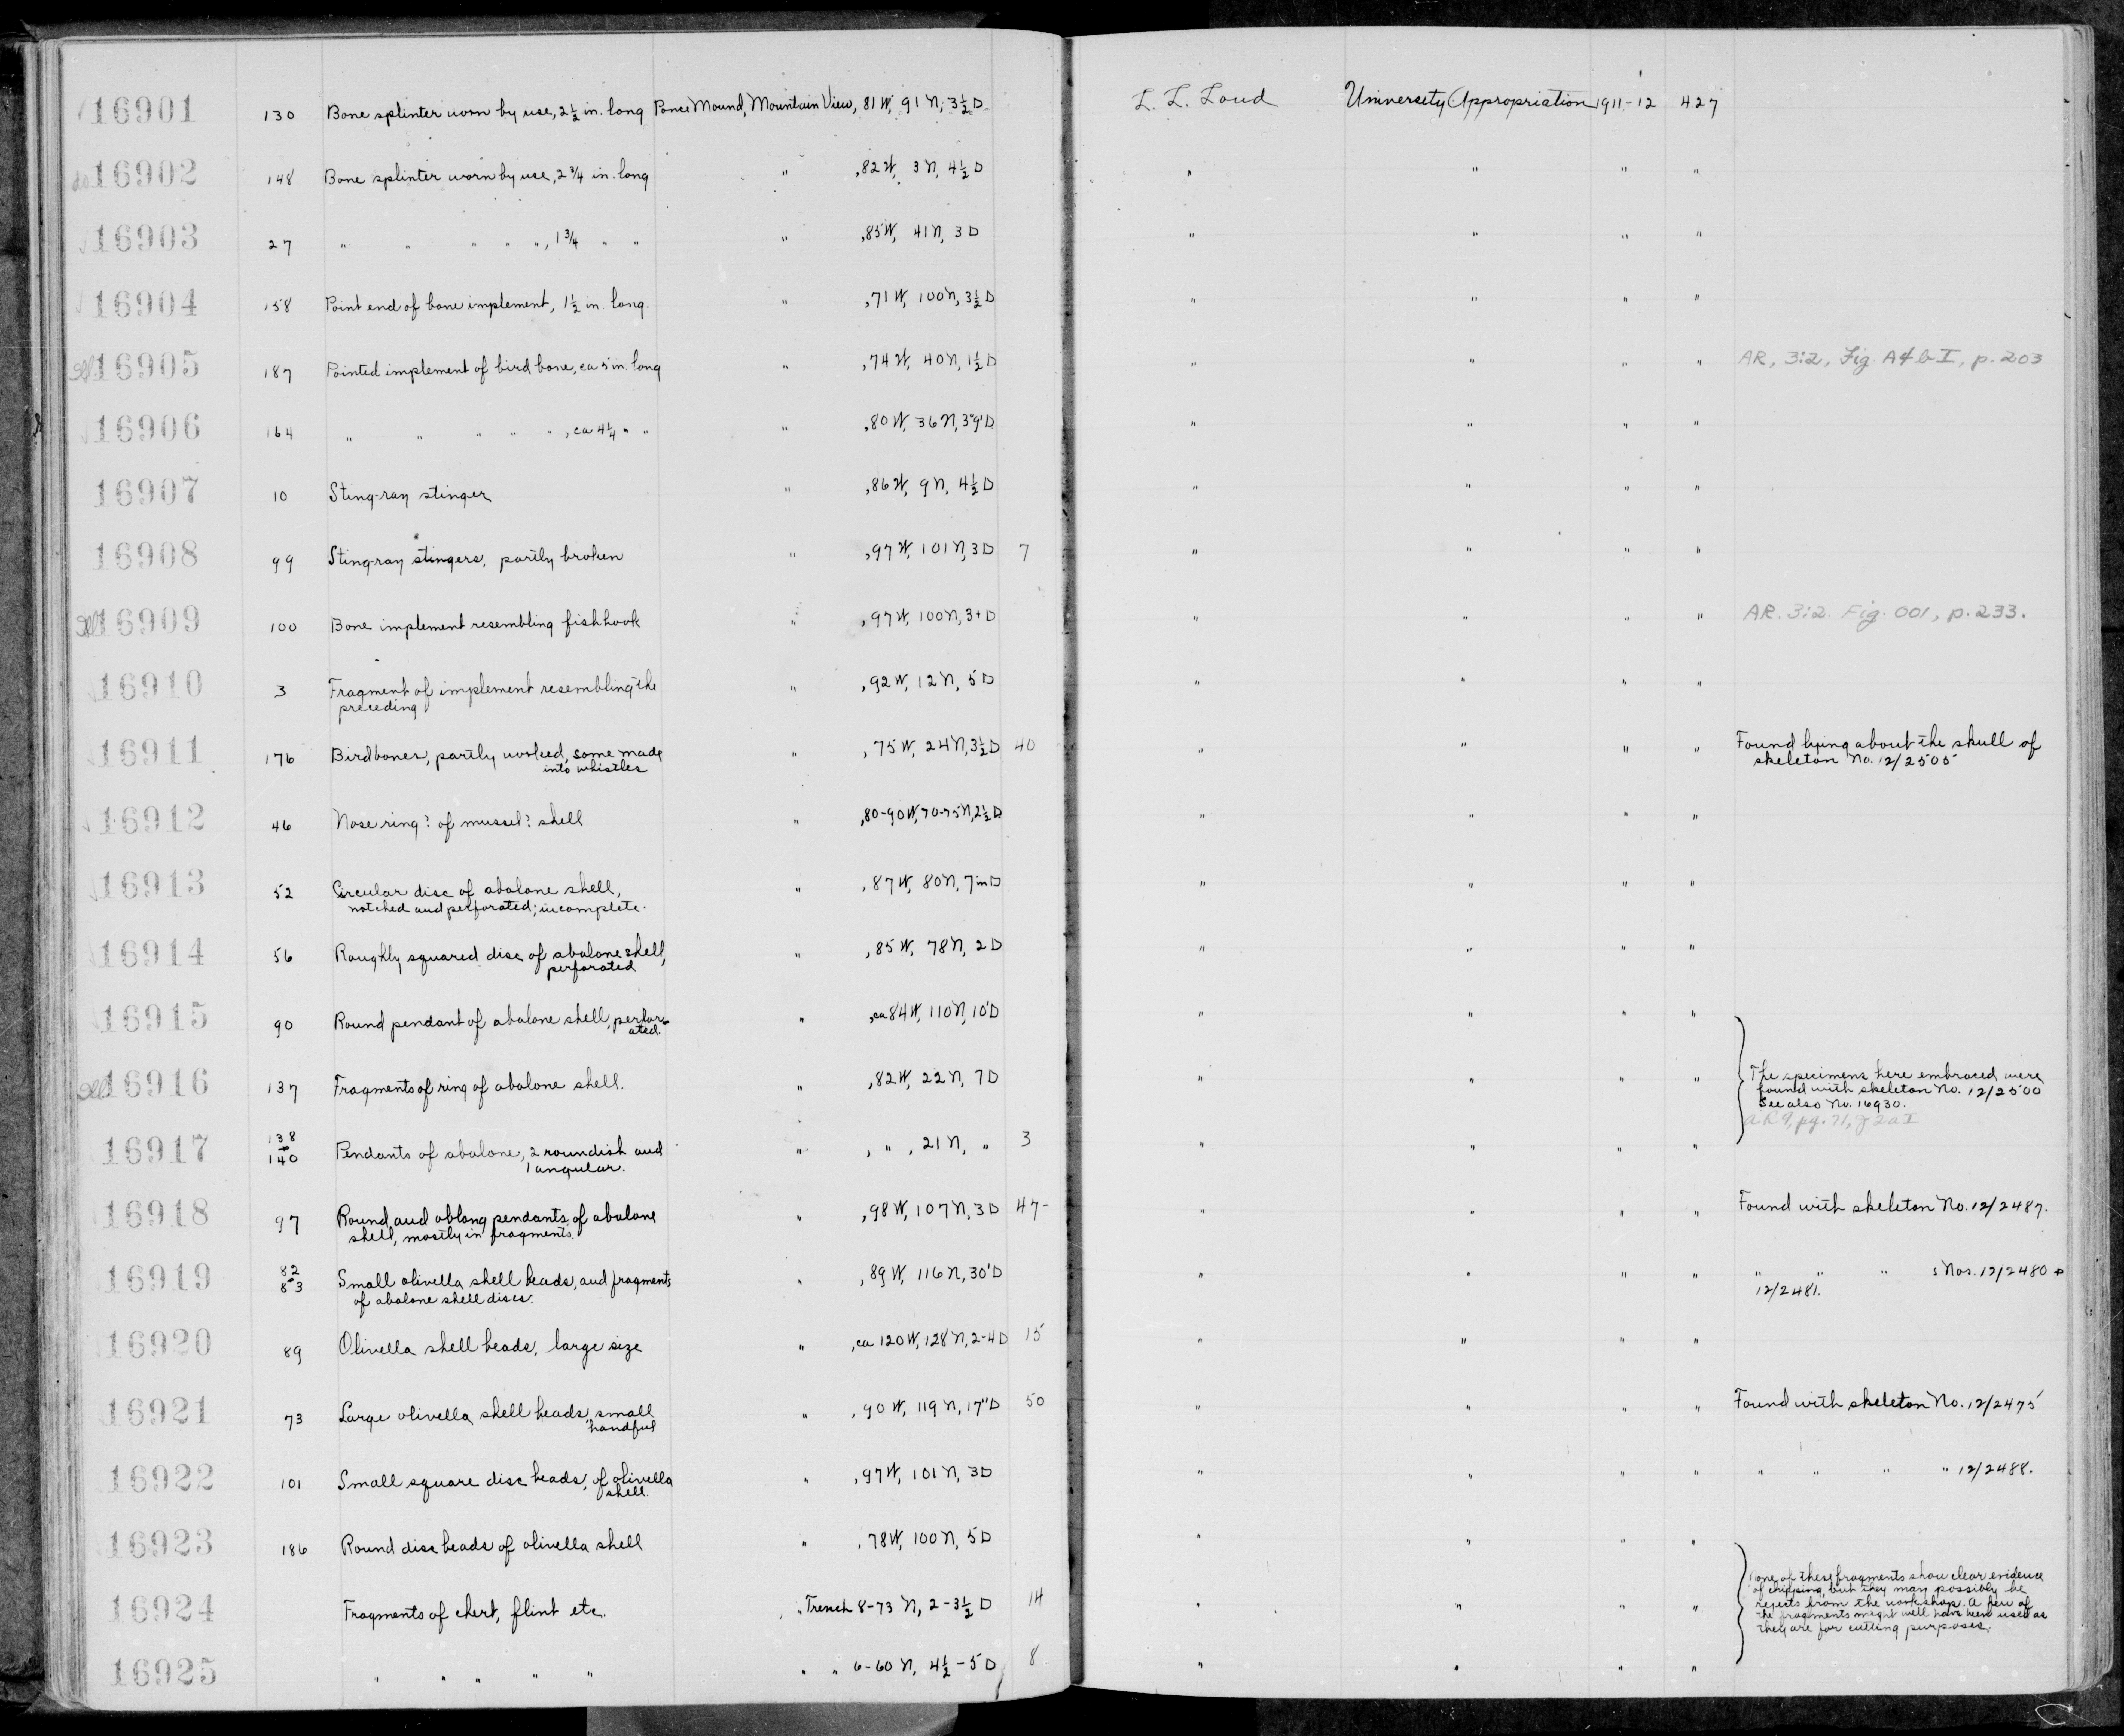 16901 130 Bone splinter worn by use, 2½ in. long Ponce Mound, Mountain View, 81 W, 91 N, 3½ D L. L. Loud University Appropriation 1911-12 427
16902 148 Bone splinter worn by use, 2¾ in. long " , 82 W, 3 N, 4½ D " " " "
16903 27 " " " " ", 1¾ " " " , 85 W, 41 N, 3 D " " " "
16904 158 Point end of bone implement, 1½ in. long. " , 71 W, 100 N, 3½ D " " " "
16905 187 Pointed implement of bird bone, ca 5 in. long " , 74 W, 40 N, 1½ D " " " " AR, 3:2, Fig. A4b-I, p. 203
16906 164 " " " " ", ca 4¼ " " " , 80 W, 36 N, 3'9" D " " " "
16907 10 Sting-ray stinger " , 86 W, 9 N, 4½ D " " " "
16908 99 Sting-ray stingers, partly broken " , 97 W, 101 N, 3 D 7 " " " "
16909 100 Bone implement resembling fishhook " , 97 W, 100 N, 3+ D " " " " AR. 3:2. Fig. 001, p. 233.
16910 3 Fragment of implement resembling the " , 92 W, 12 N, 5 D " " " "
preceding
16911 176 Bird bones, partly worked, some made " , 75 W, 24 N, 3½ D 40 " " " " Found lying about the skull of
into whistles skeleton No. 12/2505
16912 46 Nose ring? of mussel? shell " , 80-90 W, 70-75 N, 2½ D " " " "
16913 52 Circular disc of abalone shell, " , 87 W, 80 N, 7 in D " " " "
notched and perforated; incomplete.
16914 56 Roughly squared disc of abalone shell, " , 85 W, 78 N, 2 D " " " "
perforated
16915 90 Round pendant of abalone shell, perfor- " , ca 84 W, 110 N, 10' D " " " "
ated
16916 137 Fragments of ring of abalone shell. " , 82 W, 22 N, 7 D " " " " The specimens here embraced were
found with skeleton No. 12/2500
See also No. 16930.
16917 138 - 140 Pendants of abalone, 2 roundish and " , " , 21 N, " 3 " " " "
1 angular.
16918 97 Round and oblong pendants of abalone " , 98 W, 107 N, 3 D 47- " " " " Found with skeleton No. 12/2487.
shell, mostly in fragments.
16919 82 - 83 Small olivella shell beads, and fragments " , 89 W, 116 N, 30' D " " " " " " " s Nos. 12/2480 +
of abalone shell discs. 12/2481.
16920 89 Olivella shell beads, large size " , ca 120 W, 128 N, 2-4 D 15 " " " "
16921 73 Large olivella shell beads, small " , 90 W, 119 N, 17" D 50 " " " " Found with skeleton No. 12/2475
handful
16922 101 Small square disc beads, of olivella " , 97 W, 101 N, 3 D " " " " " " " " 12/2488.
shell.
16923 186 Round disc beads of olivella shell " , 78 W, 100 N, 5 D " " " "
16924 Fragments of chert, flint etc. " Trench 8-73 N, 2-3½ D 14 " " " " None of these fragments show clear evidence
of chipping, but they may possibly be
rejects from the workshop. A few of
the fragments might well have been used as
they are for cutting purposes.
16925 " " " " " " " 6-60 N, 4½-5 D 8 " " " "